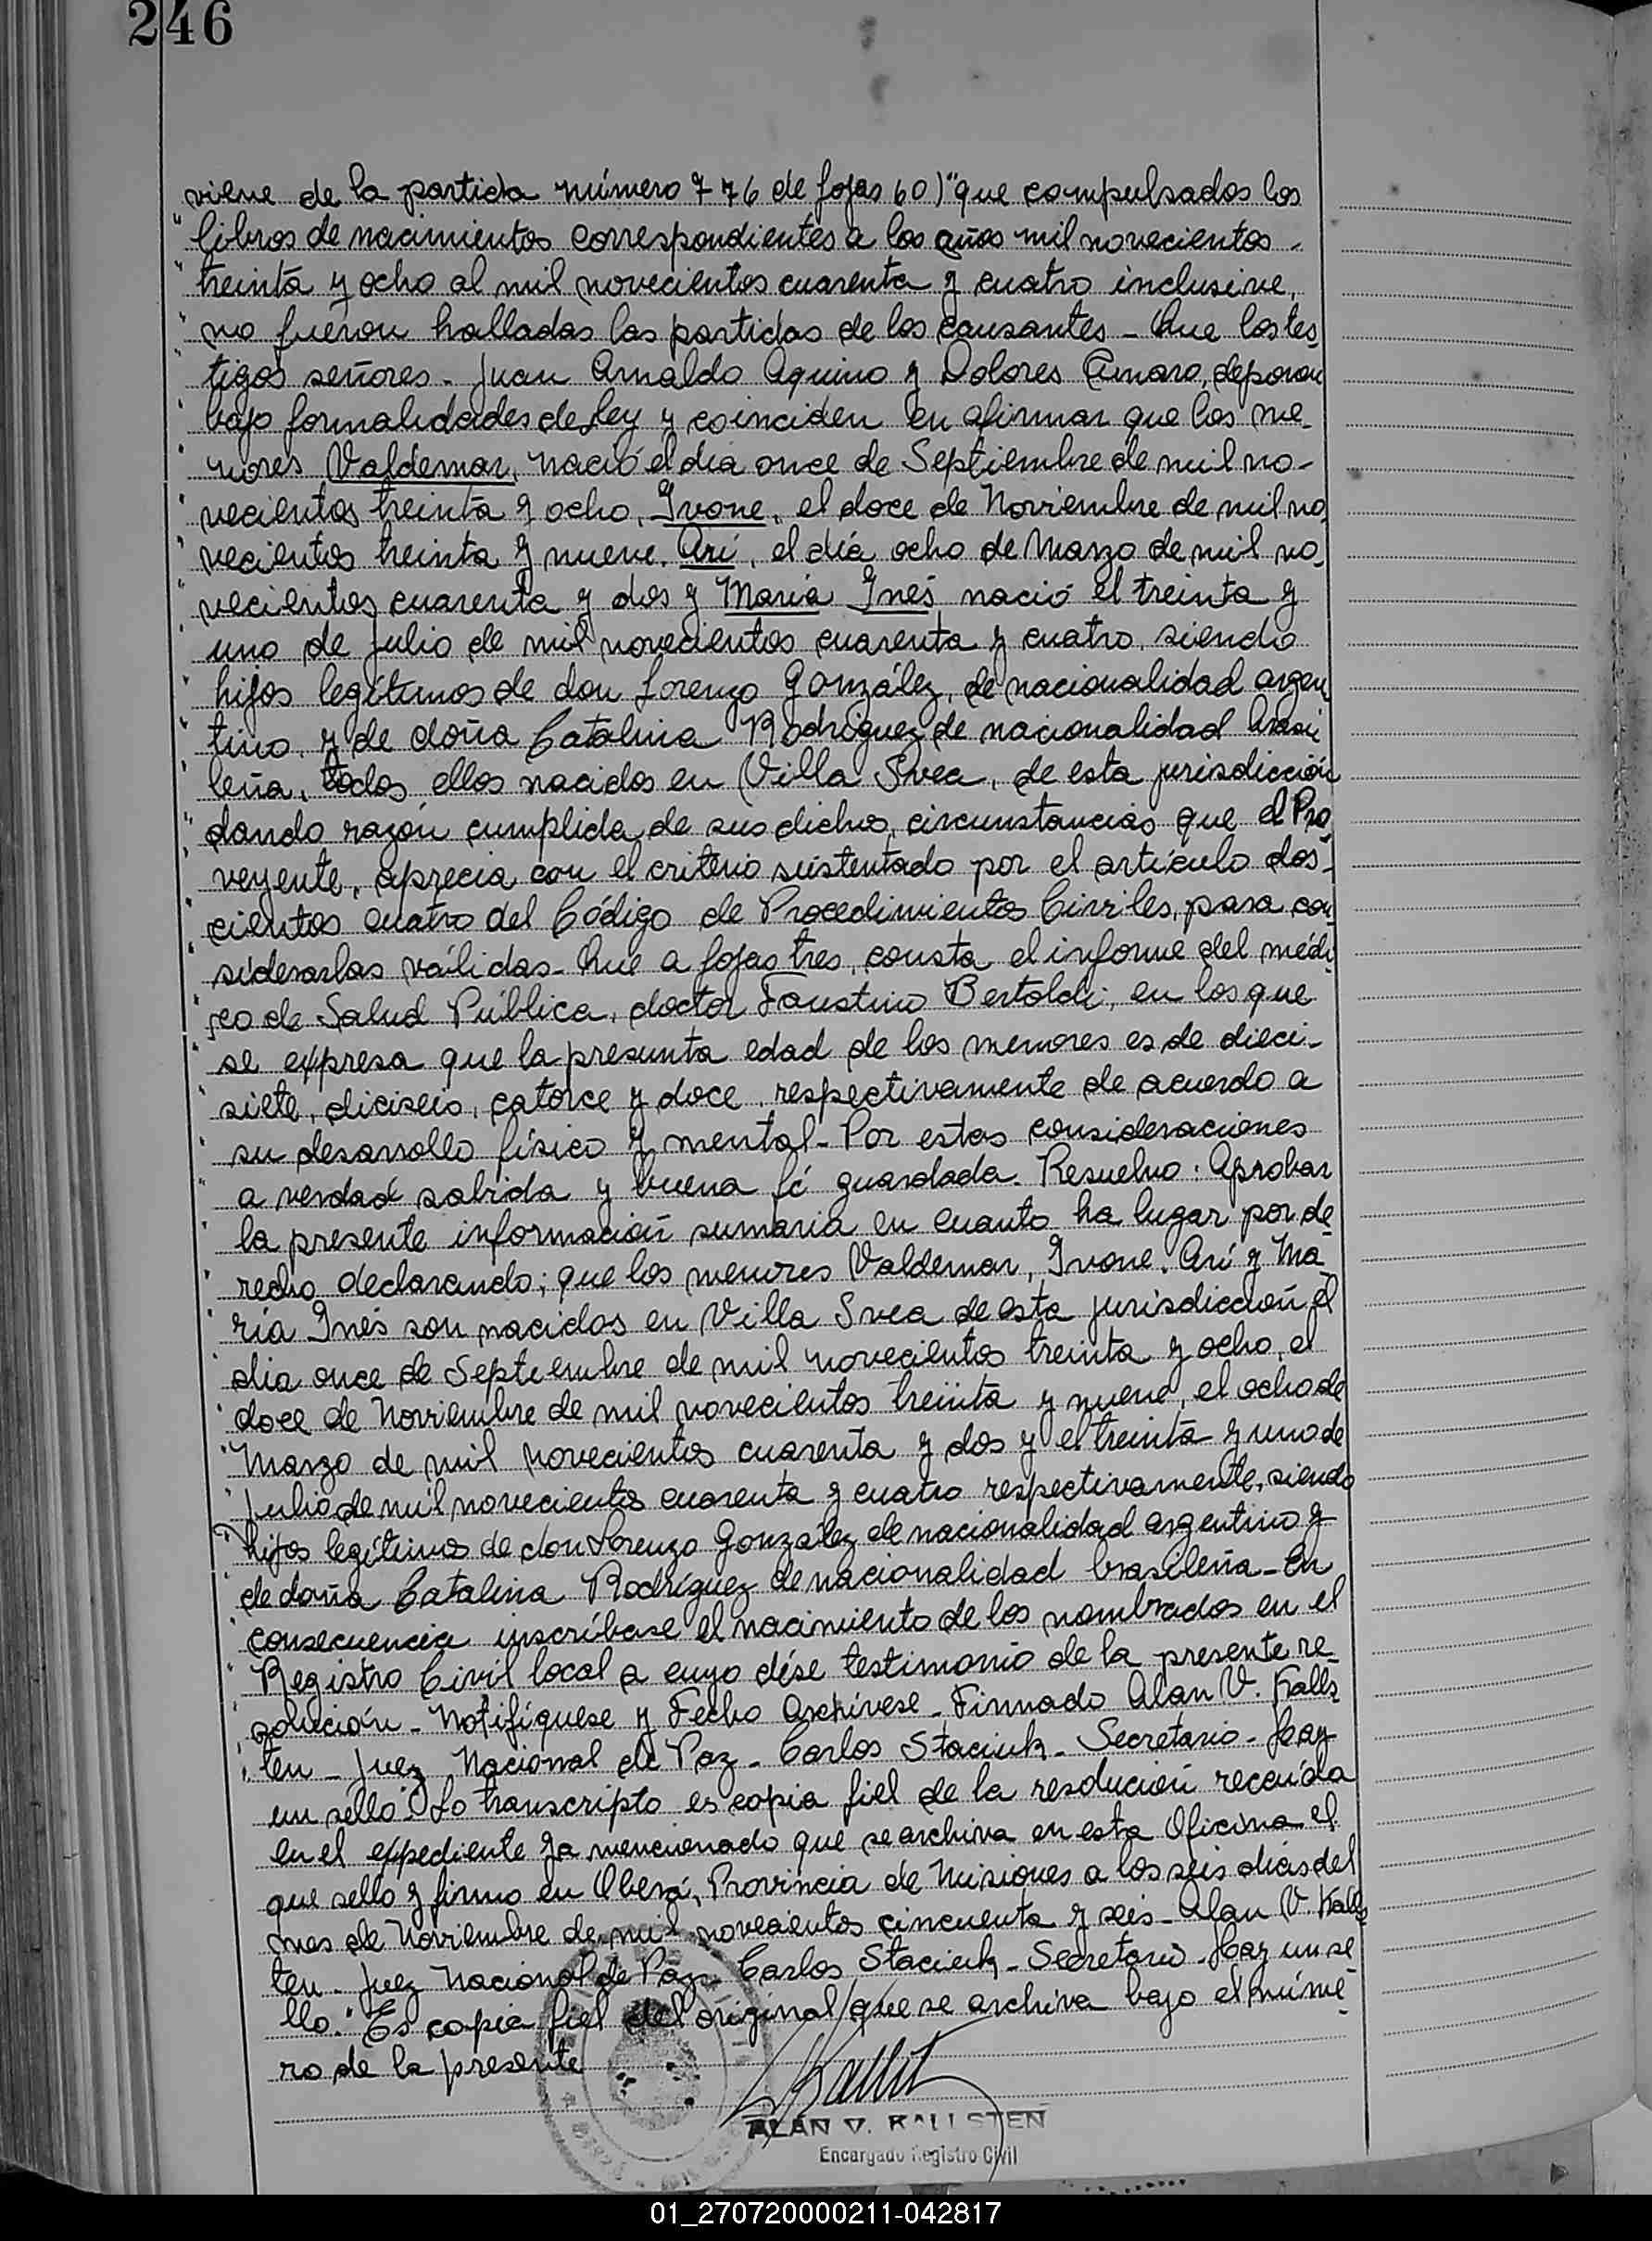 246
viene de la partida número 776 de fojas 60) "que compulsados los
" libros de nacimientos correspondientes a los años mil novecientos
" treinta y ocho al mil novecientos cuarenta y cuatro inclusive,
" no fueron halladas las partidas de los causantes - Que los tes
" tigos señores - Juan Arnaldo Aquino y Dolores Amaro, deponen
" bajo formalidades de Ley y coinciden en afirmar que los me-
" nores Valdemar, nació el día once de Septiembre de mil no-
" vecientos treinta y ocho, Ivone, el doce de Noviembre de mil no-
" vecientos treinta y nueve. Arí, el día ocho de Marzo de mil no-
" vecientos cuarenta y dos y María Inés nació el treinta y
" uno de julio de mil novecientos cuarenta y cuatro, siendo
" hijos legítimos de don Lorenzo González, de nacionalidad argen
" tino, y de doña Catalina Rodríguez de nacionalidad brasi
" leña, todos ellos nacidos en Villa Svea, de esta jurisdicción
" dando razón cumplida de sus dichos, circunstancias que el Pro
" veyente, aprecia con el criterio sustentado por el artículo dos-
" cientos cuatro del Código de Procedimientos Civiles, para con
" siderarlas válidas - Que a fojas tres, consta el informe del médi
" co de Salud Pública, doctor Faustino Bertoldi, en los que
" se expresa que la presunta edad de los menores es de dieci-
" siete, diciseis, catorce y doce, respectivamente de acuerdo a
" su desarrollo físico y mental - Por estas consideraciones
" a verdad sabida y buena fé guardada. Resuelvo: Aprobar
" la presente información sumaria en cuanto ha lugar por de
" recho declarando; que los menores Valdemar, Ivone, Arí y Ma-
" ría Inés son nacidos en Villa Svea de esta jurisdicción, el
" día once de Septiembre de mil novecientos treinta y ocho, el
" doce de Noviembre de mil novecientos treinta y nueve, el ocho de
" Marzo de mil novecientos cuarenta y dos y el treinta y uno de
" julio de mil novecientos cuarenta y cuatro respectivamente, siendo
" hijos legítimos de don Lorenzo González de nacionalidad argentino y
" de doña Catalina Rodríguez de nacionalidad brasileña - En
" consecuencia inscríbase el nacimiento de los nombrados en el
" Registro Civil local a cuyo dése testimonio de la presente re-
" solución - Notifíquese y Fecho Archívese - Firmado Alan V. Kalls
" ten - Juez Nacional de Paz - Carlos Staciuk - Secretario - Hay
un sello". Lo transcripto es copia fiel de la resolución recaída
en el expediente ya mencionado que se archiva en esta Oficina el
que sello y firmo en Oberá, Provincia de Misiones a los seis días del
mes de Noviembre de mil novecientos cincuenta y seis - Alan V. Kalls
ten - Juez Nacional de Paz - Carlos Staciuk - Secretario - Hay un se
llo." Es copia fiel del original que se archiva bajo el núme-
ro de la presente
ALAN V. KALLSTEN
Encargado Registro Civil
01_270720000211-042817